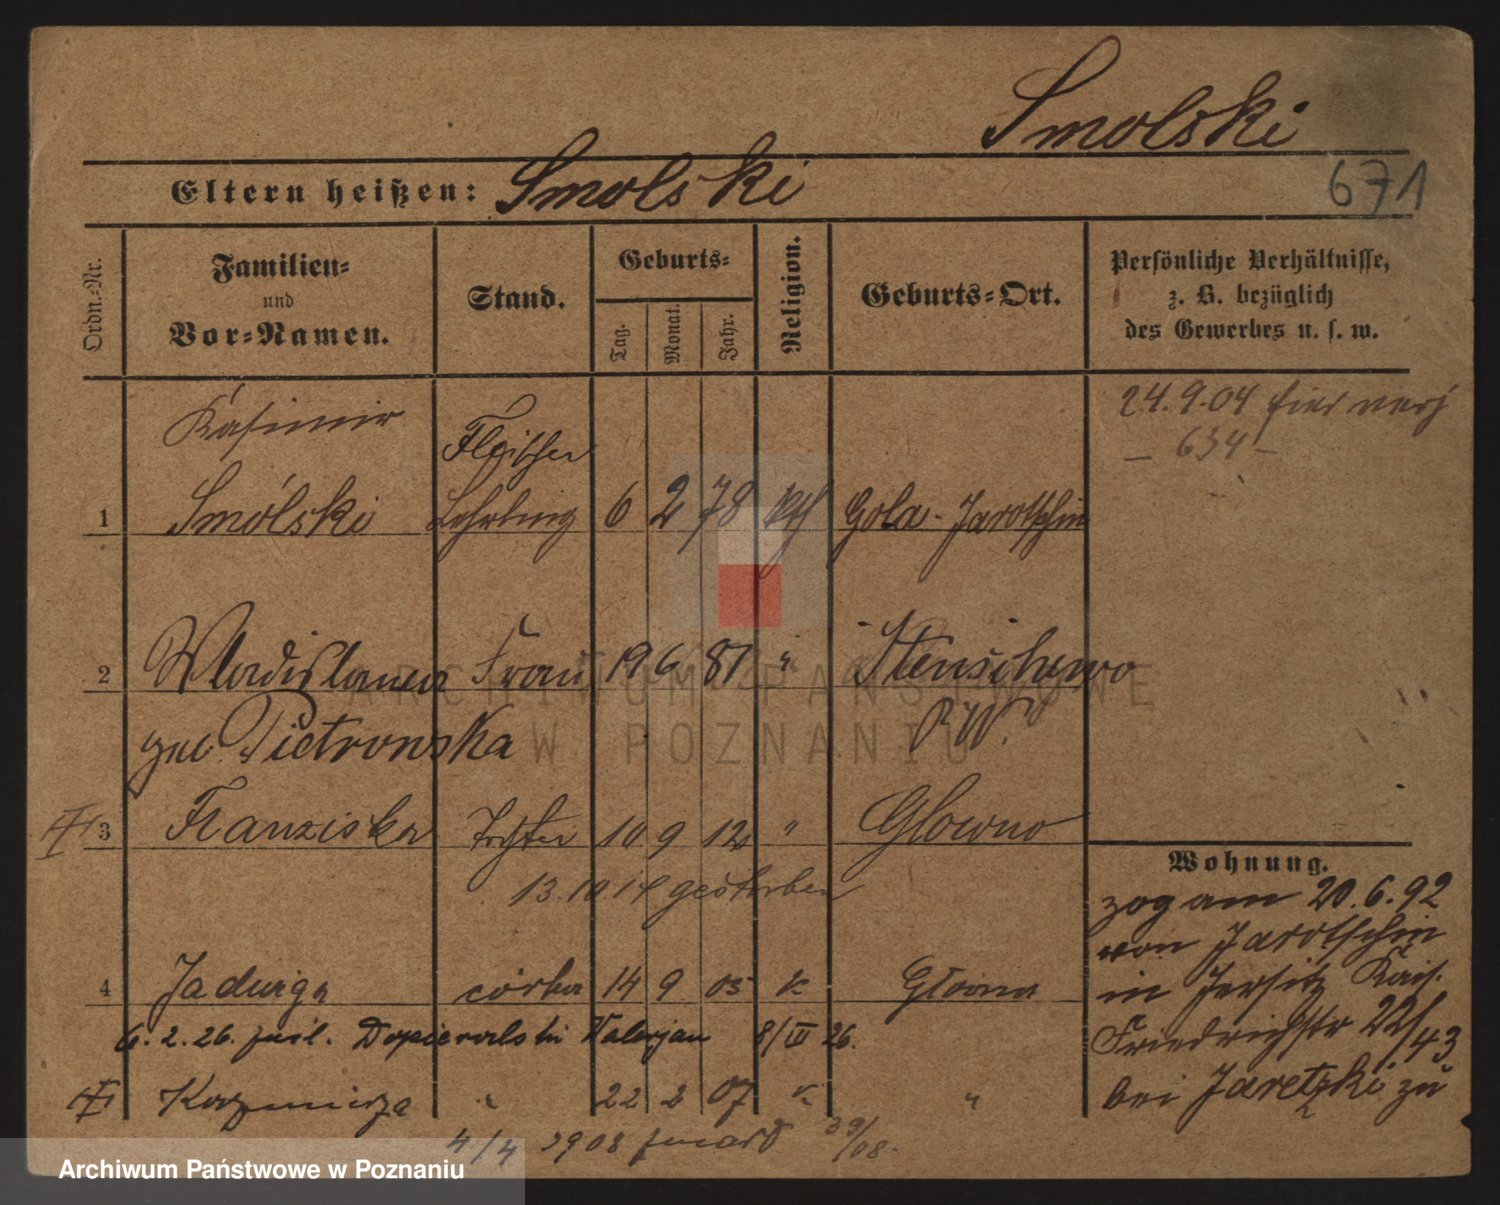 Smolski
Eltern heißen: Smolski
671
Ordn.-Nr.
Familien-
und
Vor-Namen.
Stand.
Geburts-
Tag.
Monat.
Jahr.
Religion.
Geburts-Ort.
Persönliche Verhältnisse,
z. B. bezüglich
des Gewerbes u. s. w.
Kasimir Fleischer
1 Smólski Lehrling 6 2 78 kth Gola-Jarotschin
24.9.04 hier
634
2 Wladislawa Frau 19 6 87 " Stenschewo
geb. Pietrowska P.W.
3 Franziska Tochter 10 9 12 " Glowno
13.10.14 gestorben
4 Jadwiga córka 14 9 05 k Główna
6.2.26. Dopieralski Walerjan 8/III 26.
Kazmierza " 22 2 07 k "
4/4 1908 zmarł 39/08.
Wohnung.
zog am 20.6.92
von Jarotschin
in Jersitz Kais.
Friedrichstr 22/43
bei Jaretzki zu
ARCHIWUM PAŃSTWOWE
W POZNANIU
Archiwum Państwowe w Poznaniu